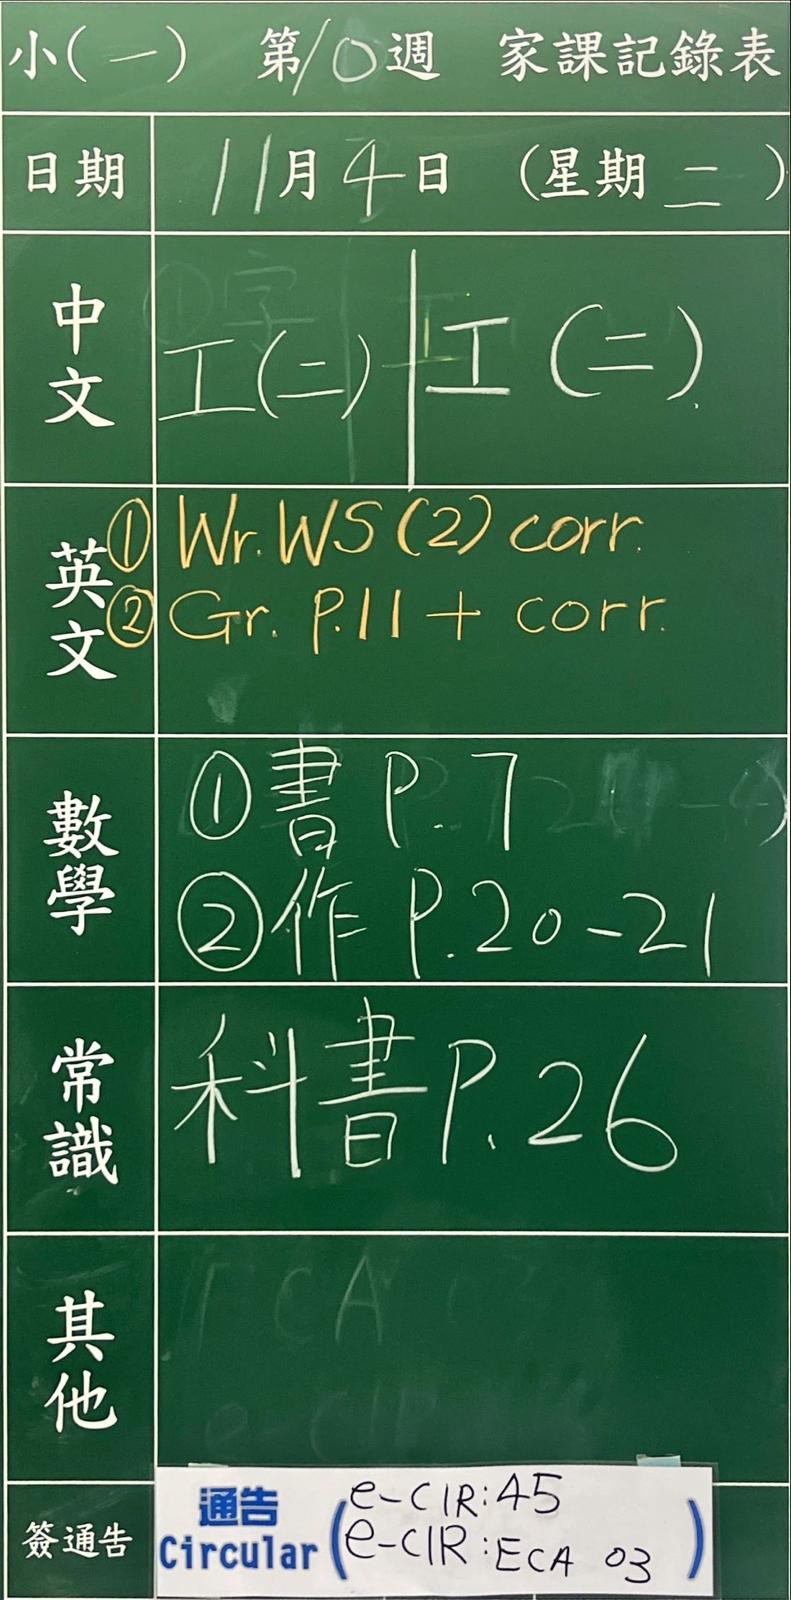 小(一) 第10週 家課記錄表
日期 11月4日 (星期二)
中文
工(二) 工(二)
英文
① Wr. WS(2) corr.
② Gr. P.11 + corr.
數學
①書 P.7
②作 P.20-21
常識
科書 P.26
其他
ECA
e-CIR
簽通告
通告 Circular (e-CIR:45
e-CIR:ECA 03)